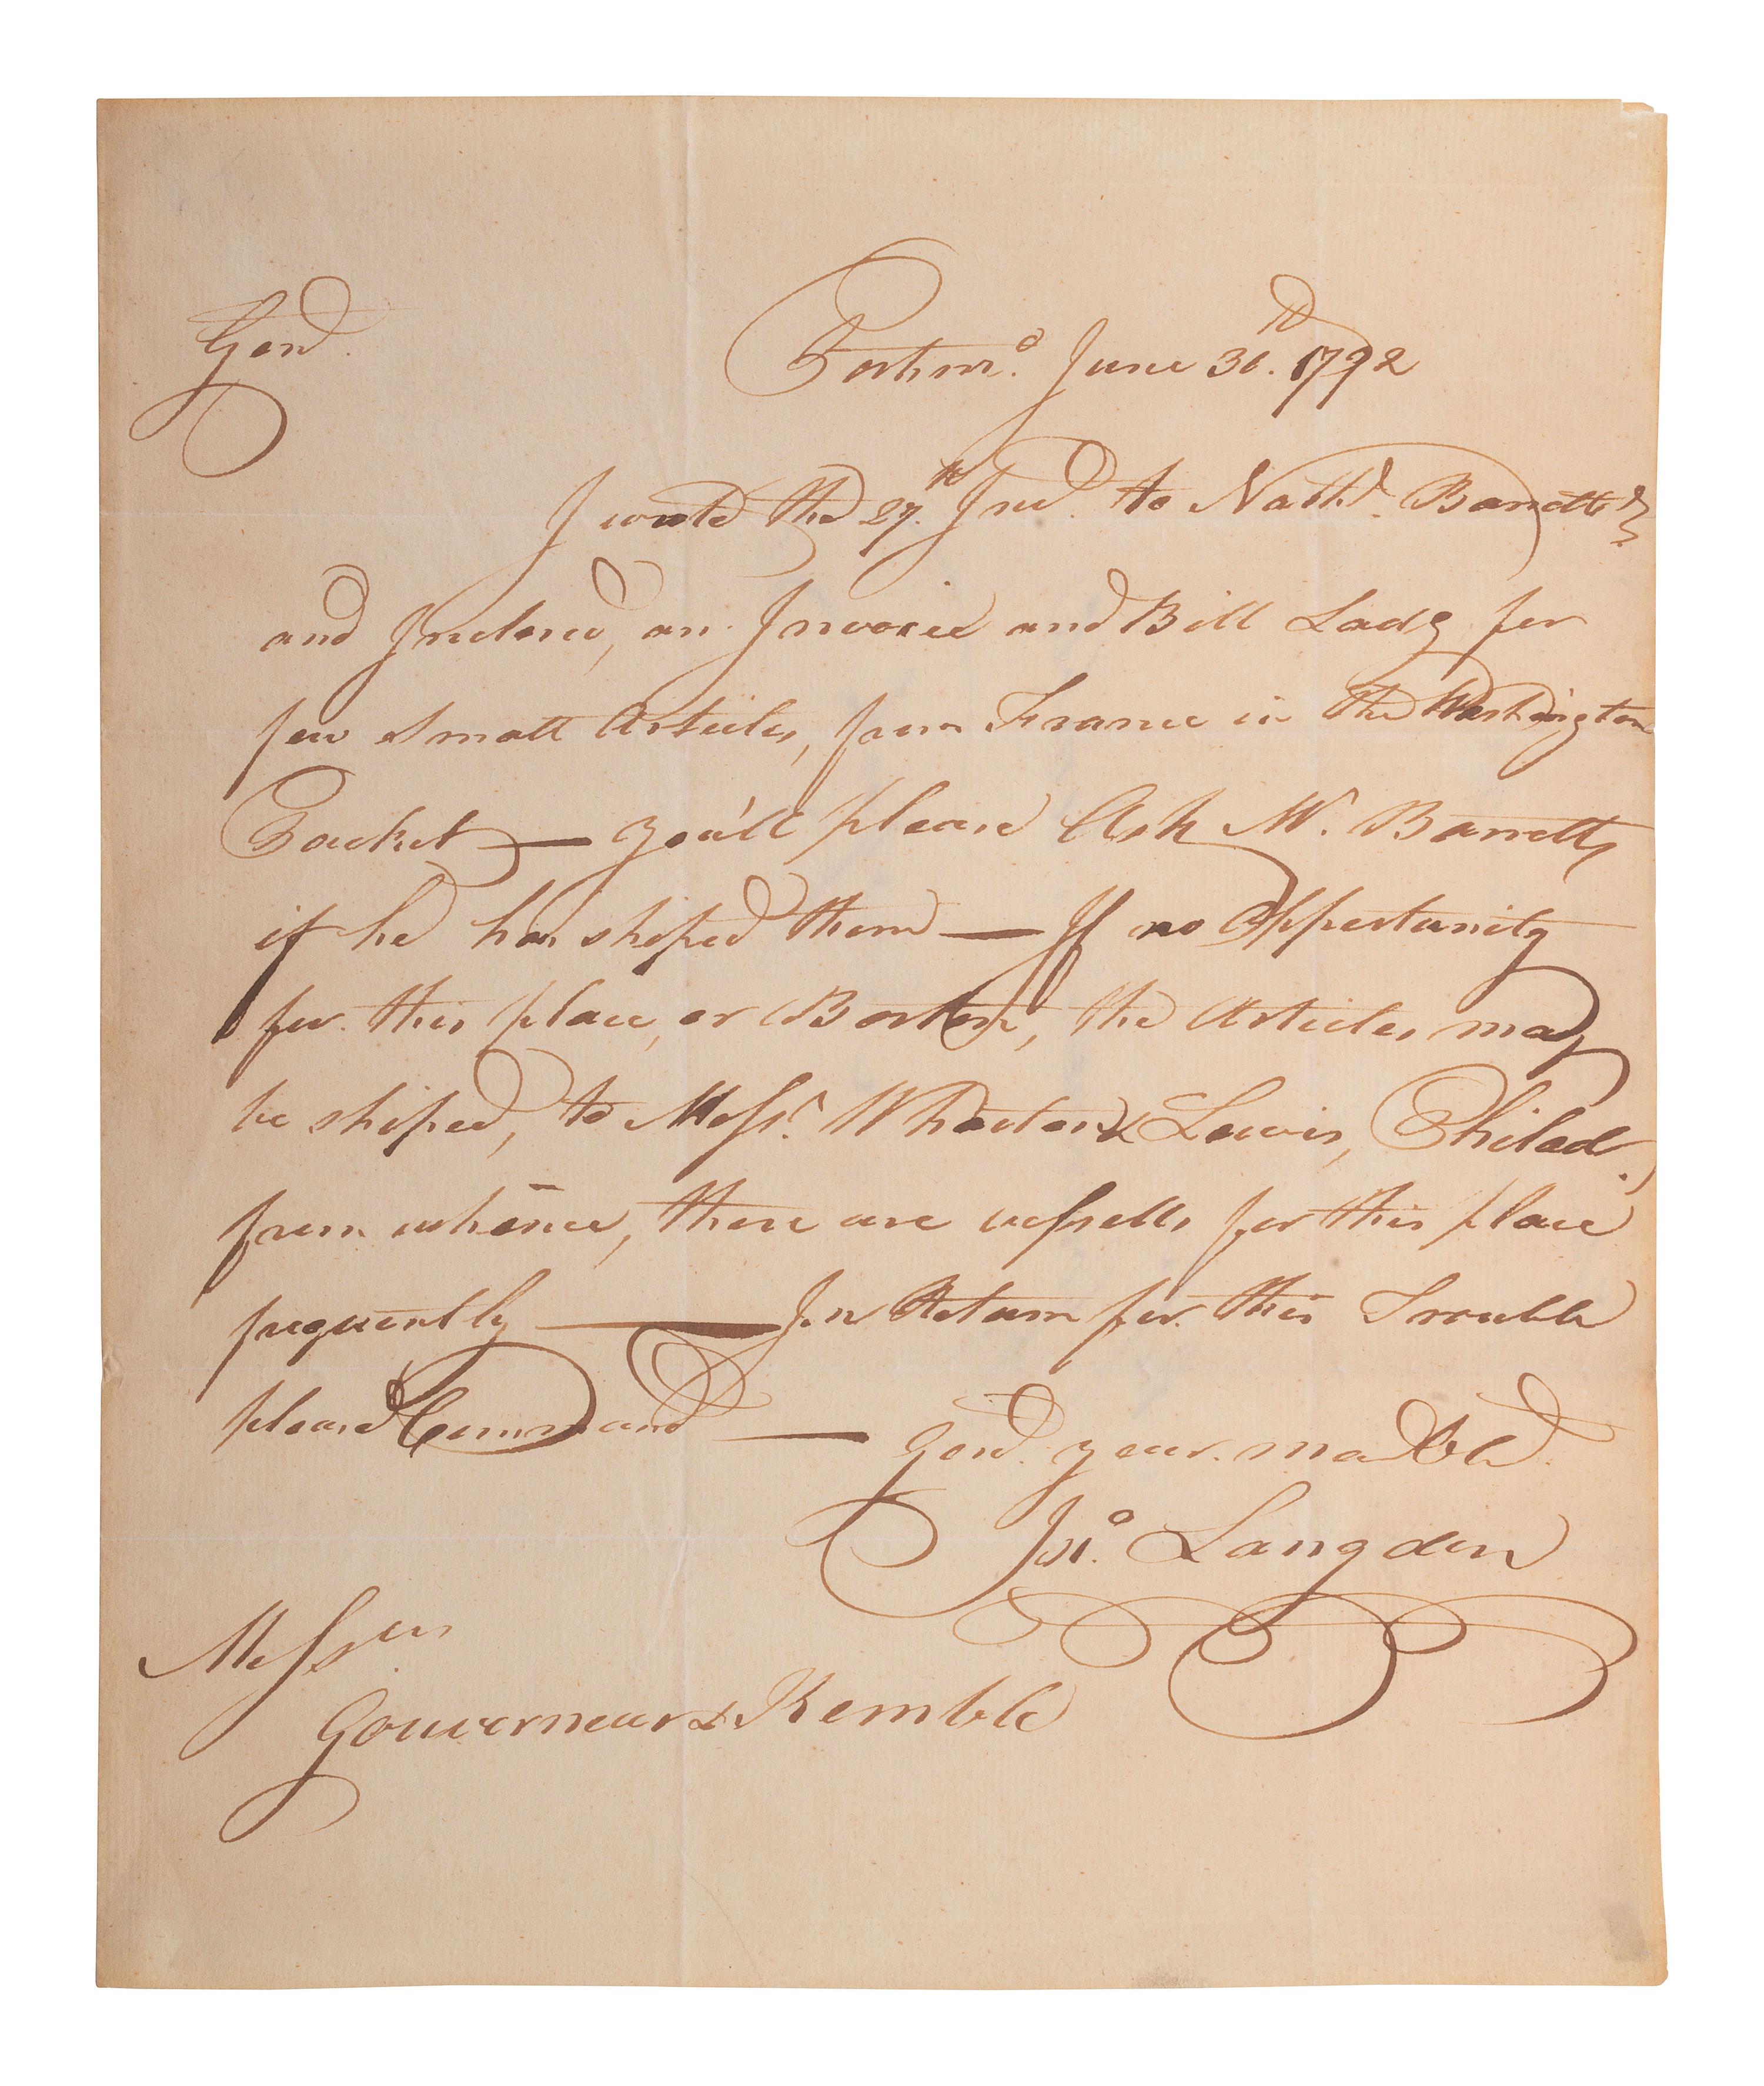 Gent.
Portsmo. June 30th. 1792
I wrote the 27th. Inst. to Nathl. Barrett
and Inclosed, an Invoice and Bill Ladg for
few small Articles, from France in the Washington
Packet — you'll please Ask Mr. Barrett,
if he has shiped them — If no Oppertunity
for this place, or Boston, the Articles may
be shiped, to Messrs. Wharton & Lewis, Philad.,
from whence, there are vessells for this place
frequently — In Return for this Trouble
please Command —
Gent. your. mo Obt.
Jno. Langdon
Messrs
Gouverneur & Kemble